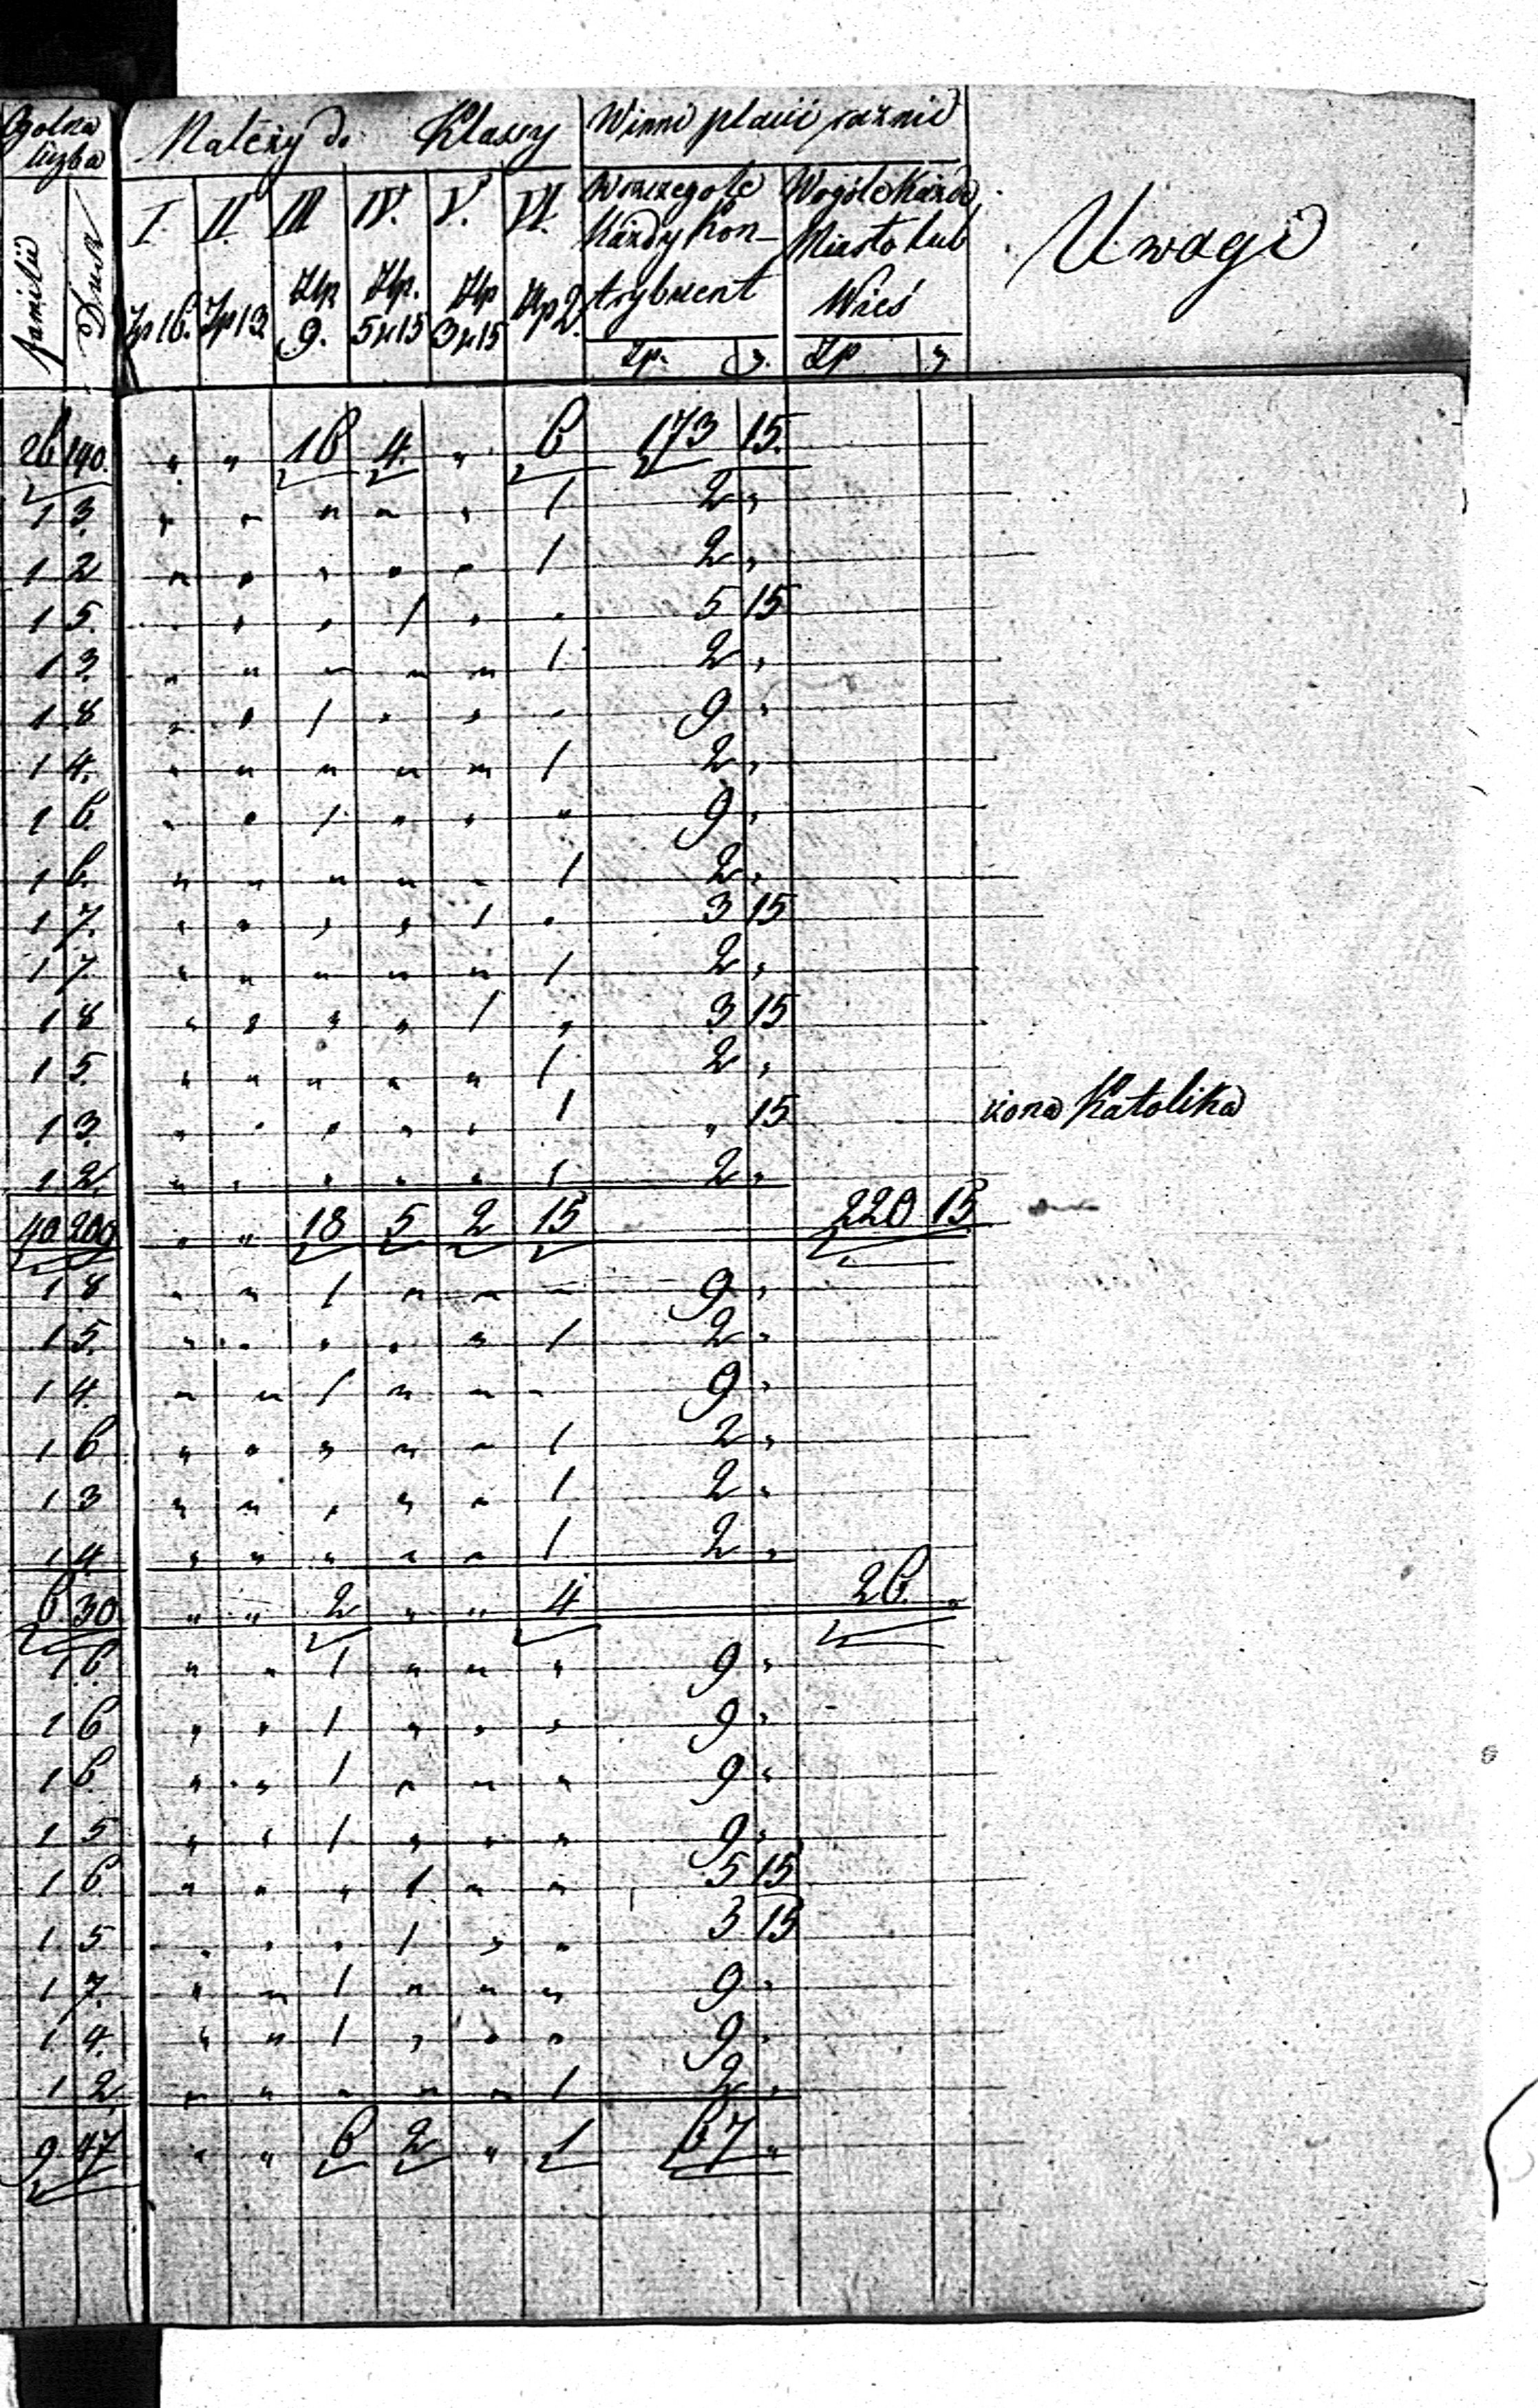 Ogolna liczba | Należy do Klassy | Winni płacić rocznie | Uwagi
familii | Dusz | I. | II. | III | IV. | V. | VI. | W szczególe Każdy Kontrybuent | W ogóle Każde Miasto lub Wieś
Zp 16. | Zp 13. | Złp 9. | Złp. 5 g 15 | Złp 3 g 15 | Złp 2. | Zp. | g. | Zp | g
26 | 140. | „ | „ | 16 | 4. | „ | 6 | 173 | 15.
1 | 3. | „ | „ | „ | „ | „ | 1 | 2 | „
1 | 2 | „ | „ | „ | „ | „ | 1 | 2 | „
1 | 5. | „ | „ | „ | 1 | „ | „ | 5 | 15
1 | 3. | „ | „ | „ | „ | „ | 1 | 2 | „
1 | 8 | „ | „ | 1 | „ | „ | „ | 9 | „
1 | 4. | „ | „ | „ | „ | „ | 1 | 2 | „
1 | 6. | „ | „ | 1 | „ | „ | „ | 9 | „
1 | 6. | „ | „ | „ | „ | „ | 1 | 2 | „
1 | 7. | „ | „ | „ | „ | 1 | „ | 3 | 15
1 | 7. | „ | „ | „ | „ | „ | 1 | 2 | „
1 | 8 | „ | „ | „ | „ | 1 | „ | 3 | 15
1 | 5. | „ | „ | „ | „ | „ | 1 | 2 | „
1 | 3. | „ | „ | „ | „ | „ | 1 | „ | 15 | żona Katolika
1 | 2. | „ | „ | „ | „ | „ | 1 | 2 | „
40 | 209 | „ | „ | 18 | 5 | 2 | 15 | 220 | 15
1 | 8 | „ | „ | 1 | „ | „ | „ | 9 | „
1 | 5. | „ | „ | „ | „ | „ | 1 | 2 | „
1 | 4. | „ | „ | 1 | „ | „ | „ | 9 | „
1 | 6 | „ | „ | „ | „ | „ | 1 | 2 | „
1 | 3 | „ | „ | „ | „ | „ | 1 | 2 | „
1 | 4 | „ | „ | „ | „ | „ | 1 | 2 | „
6. | 30 | „ | „ | 2 | „ | „ | 4 | 26. | „
1 | 6. | „ | „ | 1 | „ | „ | „ | 9 | „
1 | 6 | „ | „ | 1 | „ | „ | „ | 9 | „
1 | 6. | „ | „ | 1 | „ | „ | „ | 9 | „
1 | 5 | „ | „ | 1 | „ | „ | „ | 9 | „
1 | 6. | „ | „ | „ | 1 | „ | „ | 5 | 15
1 | 5 | „ | „ | „ | 1 | „ | „ | 3 | 15
1 | 7. | „ | „ | 1 | „ | „ | „ | 9 | „
1 | 4. | „ | „ | 1 | „ | „ | „ | 9 | „
1 | 2 | „ | „ | „ | „ | „ | 1 | 2 | „
9 | 47 | „ | „ | 6 | 2 | „ | 1 | 67 | „